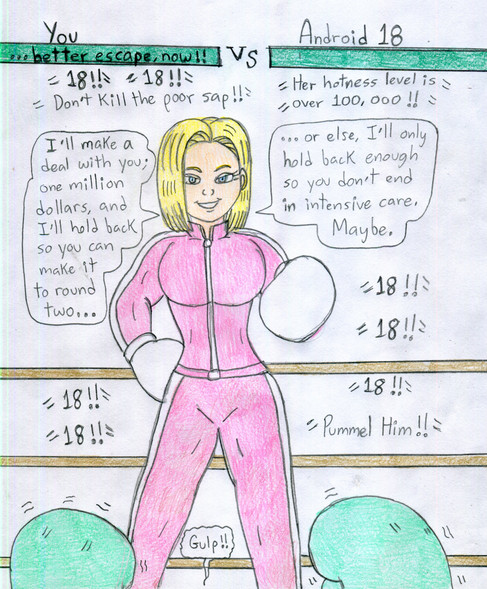 You
VS
Android 18
...better escape, now!!
18!! 18!!
Don't Kill the poor sap!!
Her hotness level is
over 100,000!!
I'll make a
deal with you;
one million
dollars, and
I'll hold back
so you can
make it
to round
two...
... or else, I'll only
hold back enough
so you don't end
in intensive care.
Maybe.
18!!
18!!
18!!
18!!
18!!
Pummel Him!!
Gulp!!